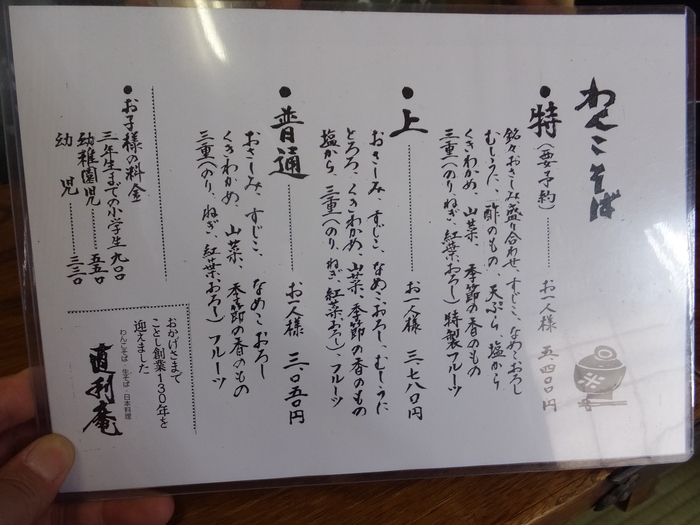 わんこそば
●特(要予約)………お一人様 五、四〇〇円
銘々おさしみ盛り合わせ、すじこ、なめこおろし
むしうに、酢のもの、天ぷら、塩から
くきわかめ、山菜、季節の香のもの
三重(のり、ねぎ、紅葉おろし)特製フルーツ
●上………お一人様 三、七八〇円
おさしみ、すじこ、なめこおろし、むしうに
とろろ、くきわかめ、山菜、季節の香のもの
塩から、三重(のり、ねぎ、紅葉おろし)、フルーツ
●普通………お一人様 三、〇五〇円
おさしみ、すじこ、なめこおろし
くきわかめ、山菜、季節の香のもの
三重(のり、ねぎ、紅葉おろし)フルーツ
●お子様の料金
三年生までの小学生 九〇〇
幼稚園児………五五〇
幼児………三三〇
おかげさまで
ことし創業130年を
迎えました
わんこそば・生そば・日本料理
直利庵